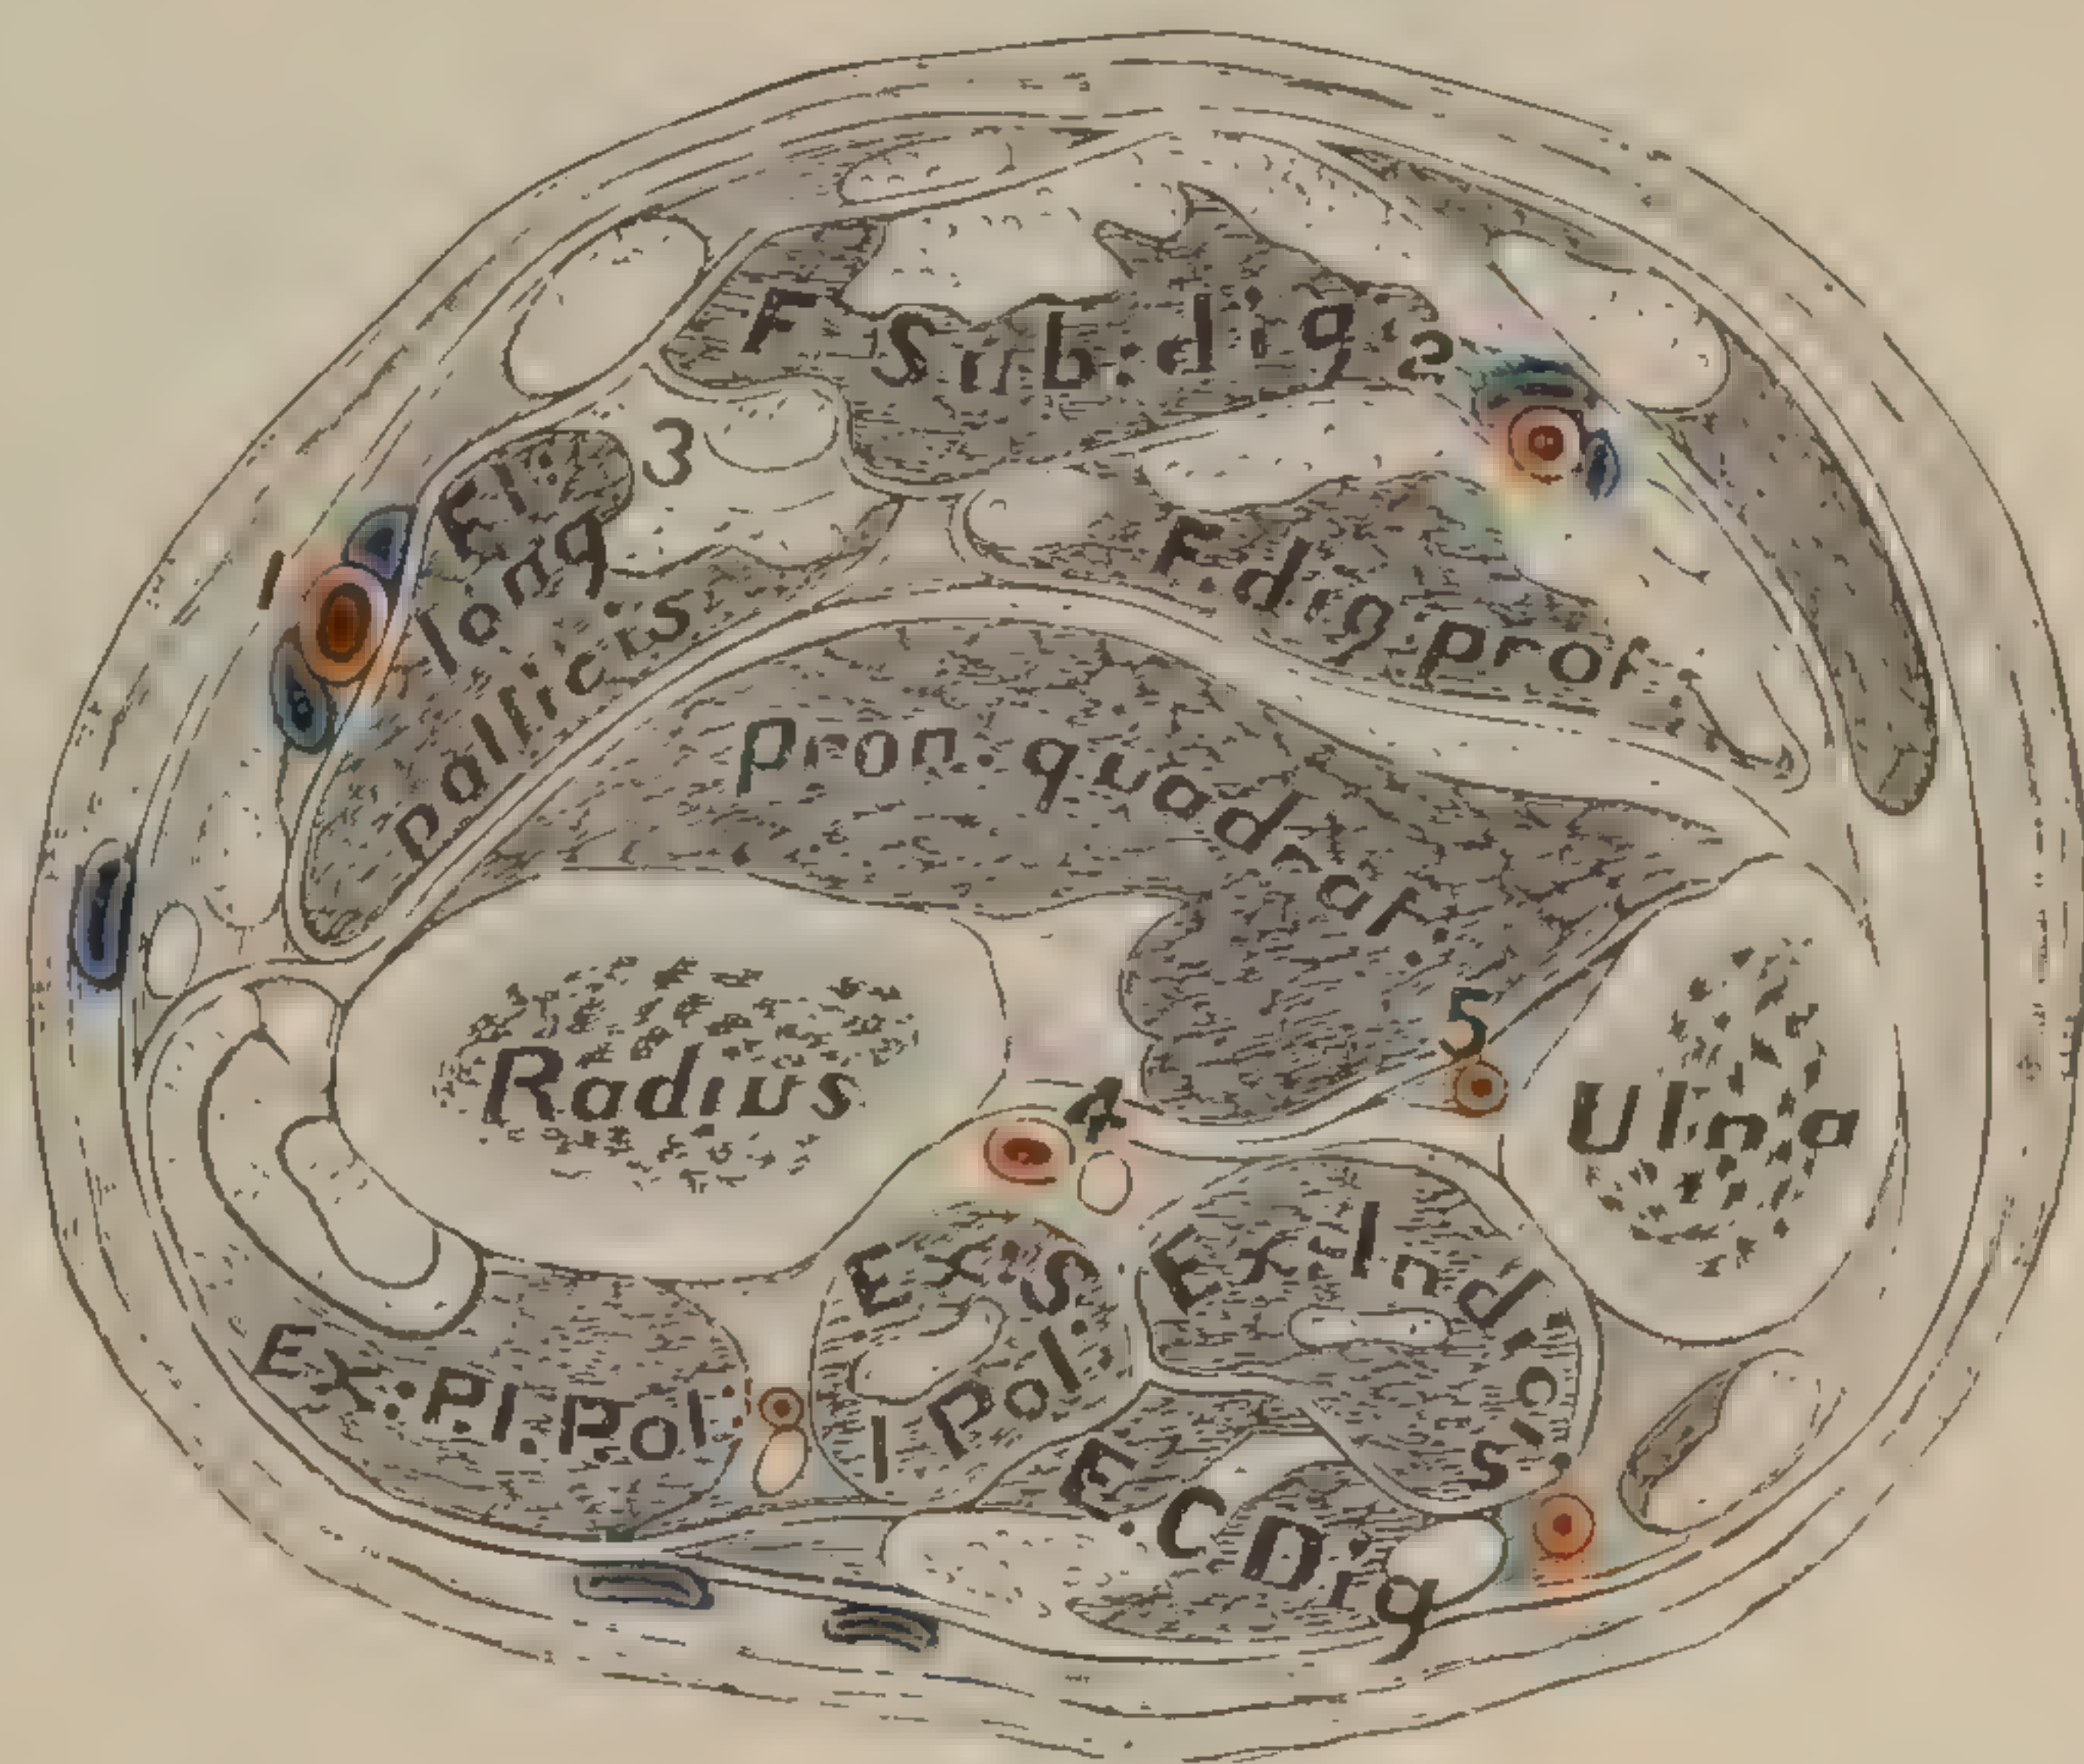 F. Sub. dig.
2
3
Fl. long pollicis
1
F. dig. prof.
pron. quadrat.
5
Radius
4
Ulna
Ex. S. I Pol.
Ex. Indicis
Ex. P. I. Pol.
E. C. Dig